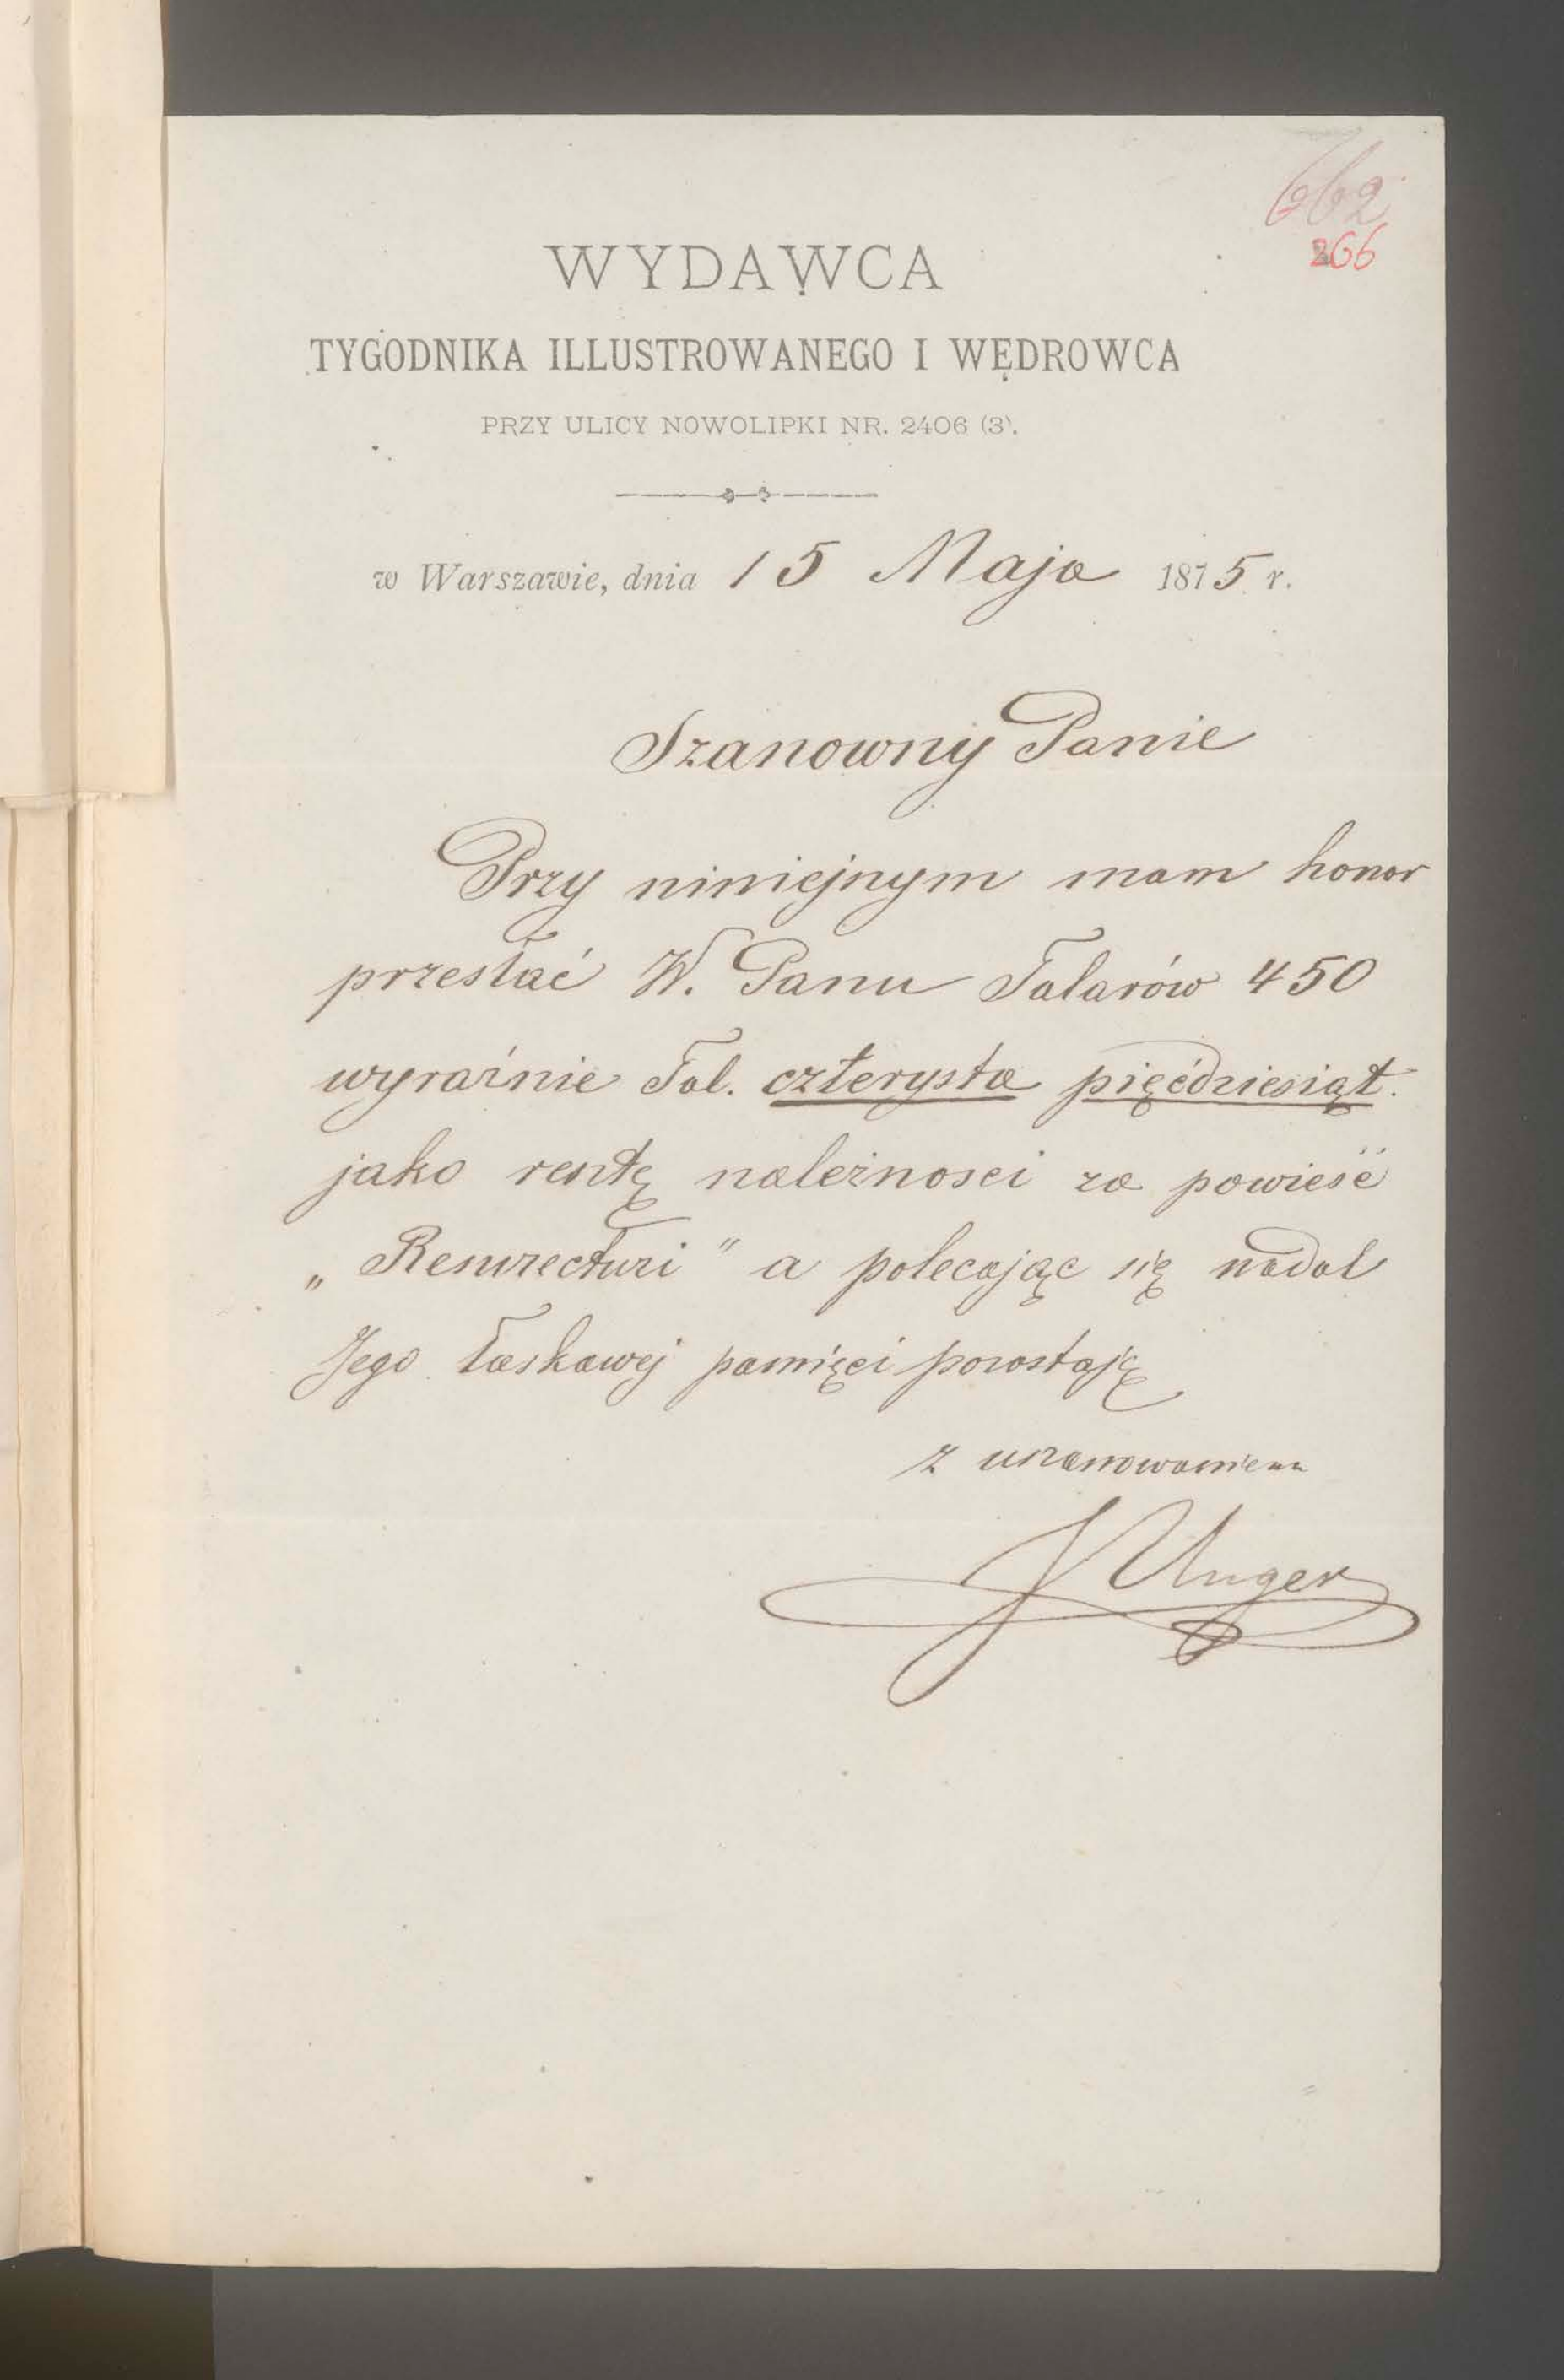 662
266
WYDAWCA
TYGODNIKA ILLUSTROWANEGO I WĘDROWCA
PRZY ULICY NOWOLIPKI NR. 2406 (3).
w Warszawie, dnia 15 Maja 1875 r.
Szanowny Panie
Przy niniejszym mam honor
przesłać W. Panu Talarów 450
wyraźnie Tal. czterysta pięćdziesiąt.
jako resztę należnosci za powieść
„Resurrecturi" a polecając się nadal
Jego łaskawej pamięci pozostaję
z uszanowaniem
J Unger